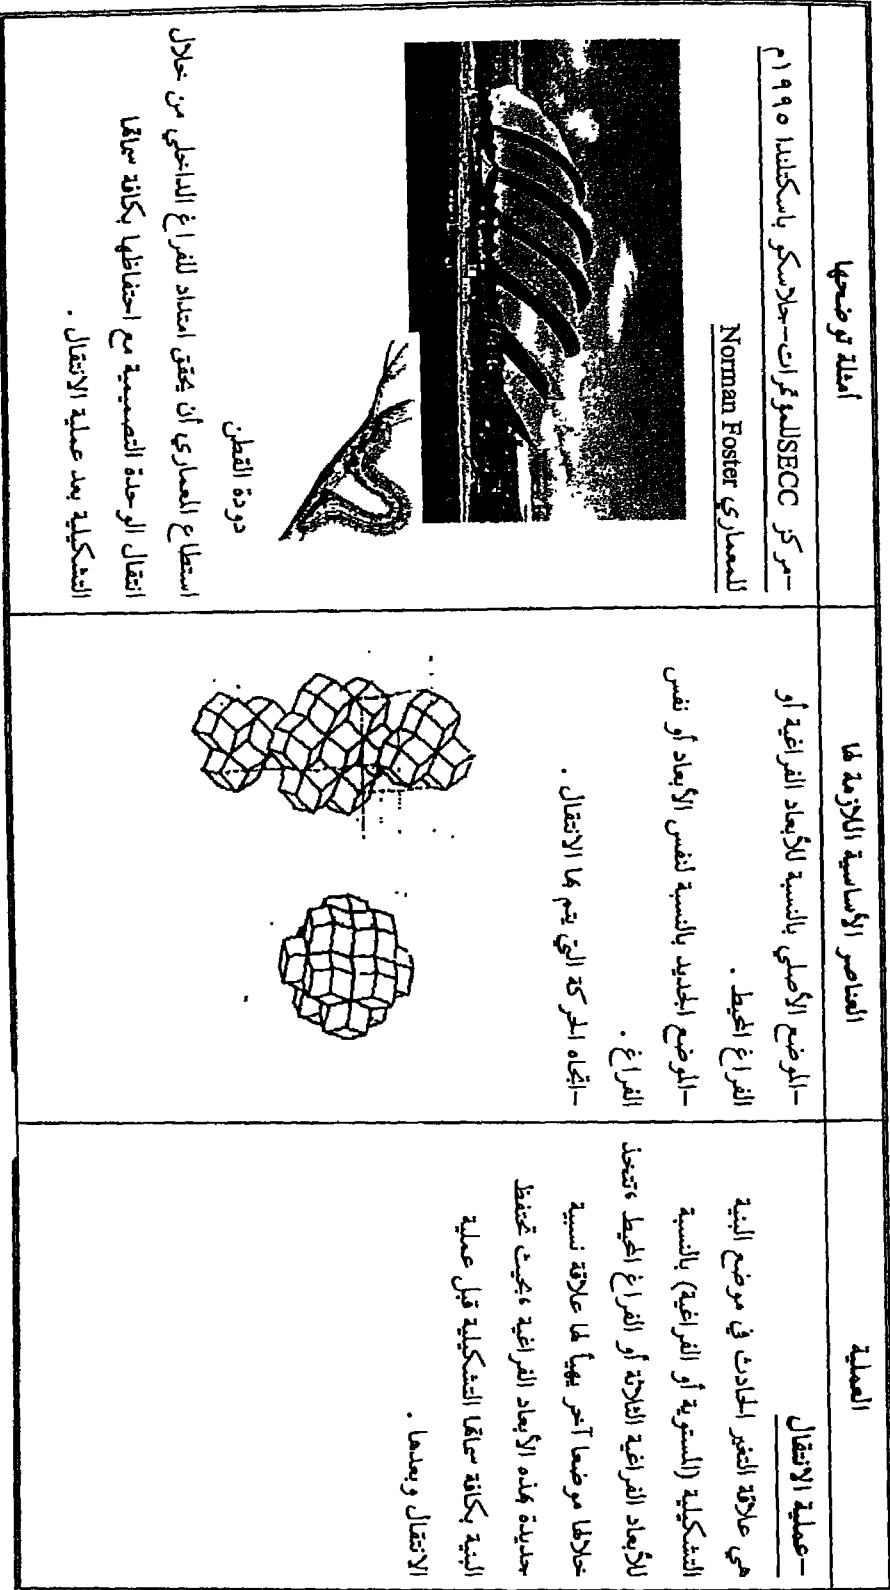 العملية
-عملية الانتقال
هي علاقة التغير الحادث في موضع البنية
التشكيلية (المستوية أو الفراغية) بالنسبة
للأبعاد الفراغية الثلاثة أو الفراغ المحيط ،تتخذ
خلالها موضعا آخر يهيأ لها علاقة نسبية
جديدة بهذه الأبعاد الفراغية ،بحيث تحتفظ
البنية بكافة سماتها التشكيلية قبل عملية
الانتقال وبعدها .
العناصر الأساسية اللازمة لها
-الموضع الأصلي بالنسبة للأبعاد الفراغية أو
الفراغ المحيط .
-الموضع الجديد بالنسبة لنفس الأبعاد أو نفس
الفراغ .
-اتجاه الحركة التي يتم بها الانتقال .
أمثلة توضحها
-مركز SECCللمؤتمرات-جلاسكو باسكتلندا ١٩٩٥م
للمعماري Norman Foster
دودة القطن
استطاع المعماري أن يحقق امتداد للفراغ الداخلي من خلال
انتقال الوحدة التصميمية مع احتفاظها بكافة سماتها
التشكيلية بعد عملية الانتقال .